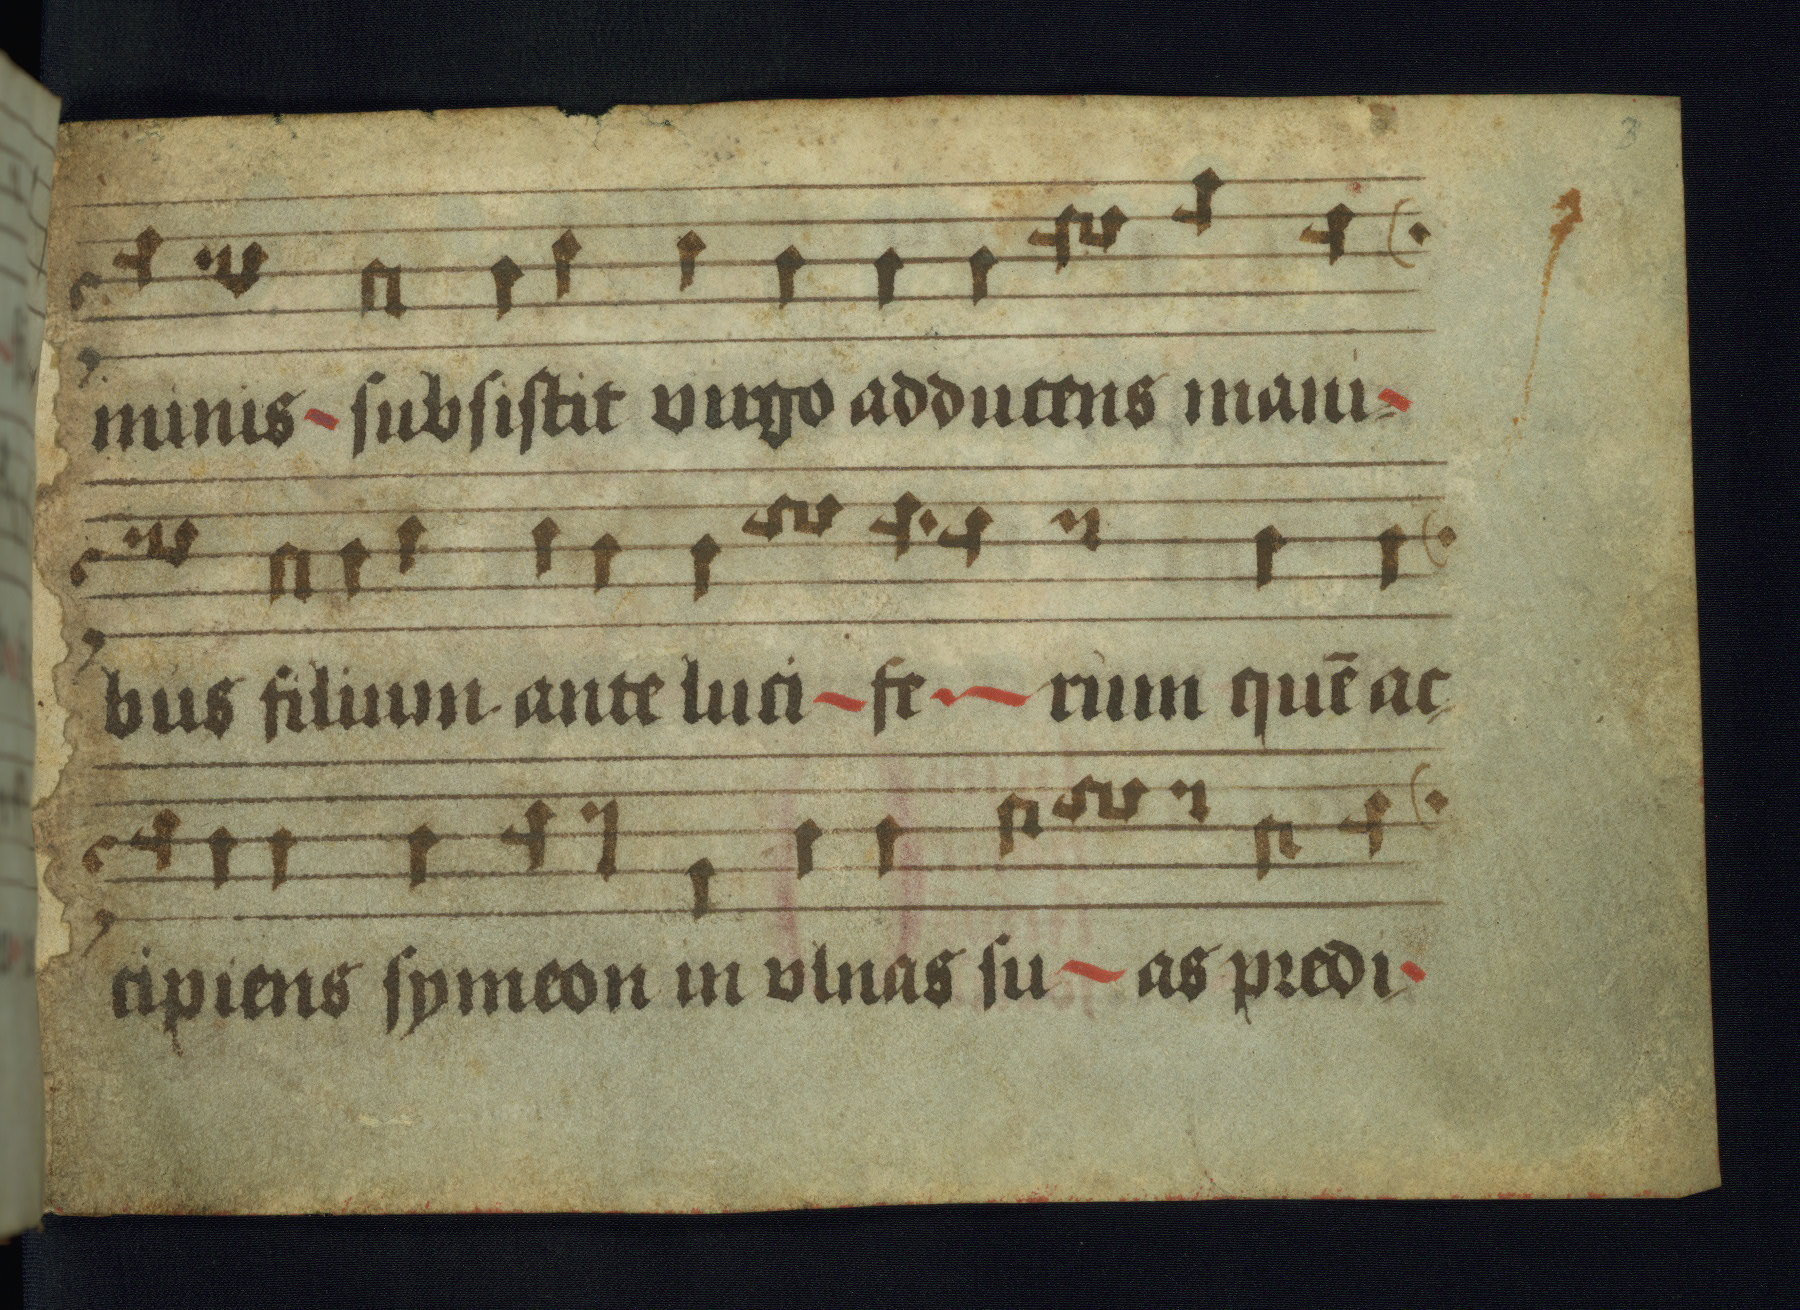 3
minis subsistit virgo adducens mani
bus filium ante luci fe rum quē ac
cipiens symeon in vlnas su as predi